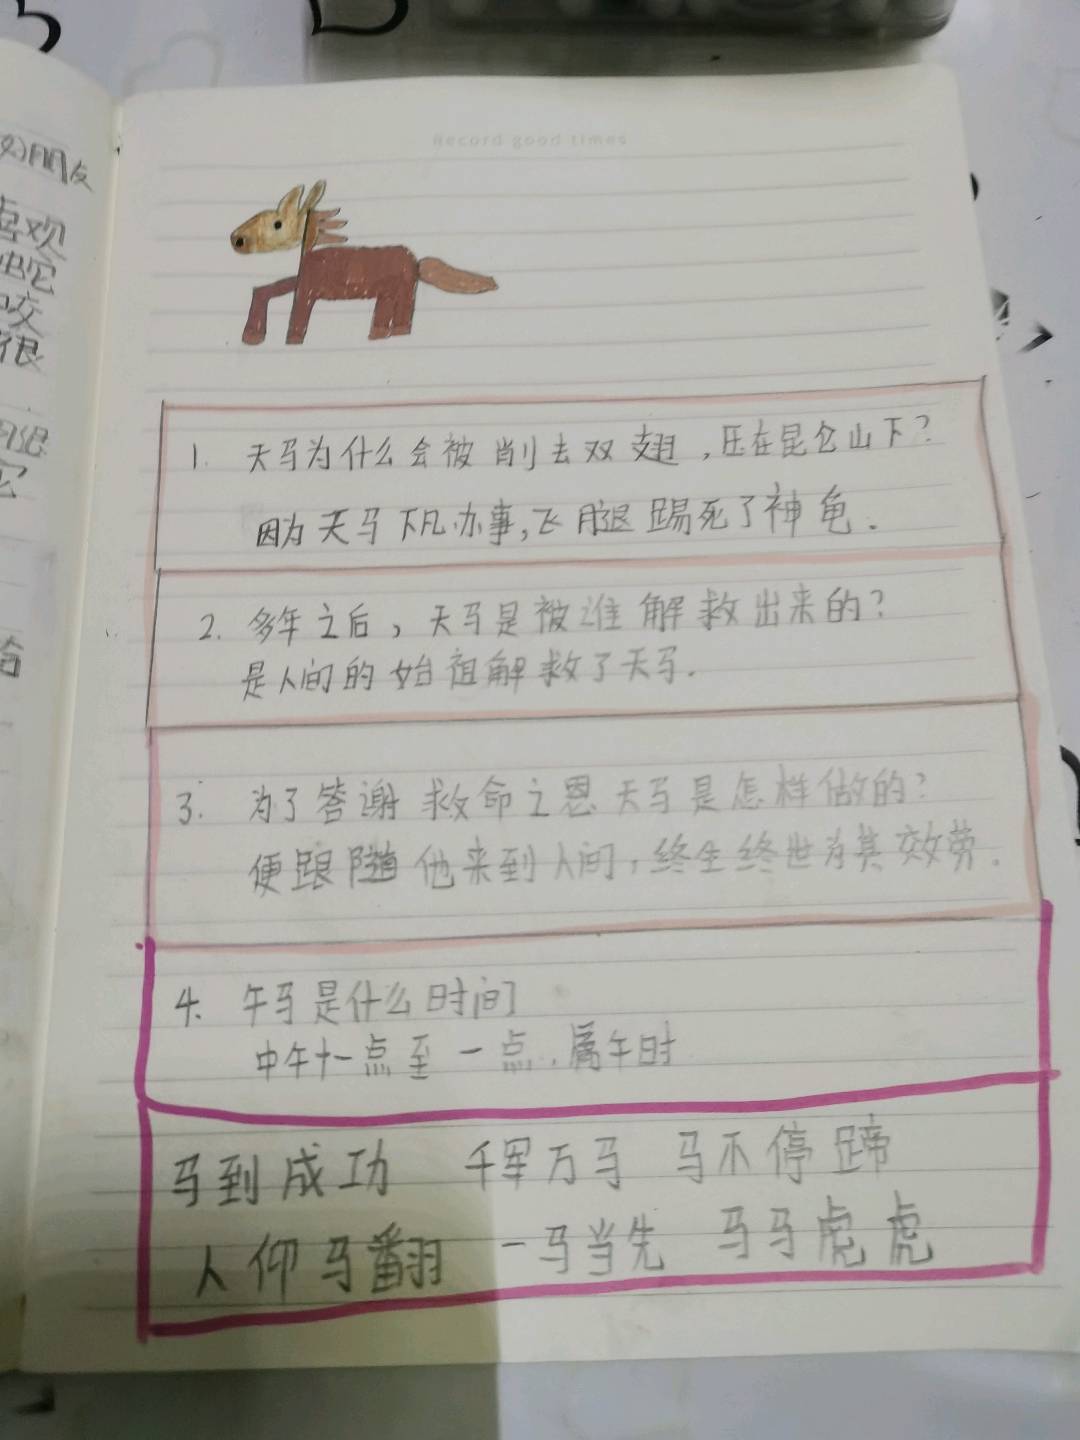 Record good times
1. 天马为什么会被削去双翅,压在昆仑山下?
因为天马下凡办事,飞腿踢死了神龟.
2. 多年之后,天马是被谁解救出来的?
是人间的始祖解救了天马.
3. 为了答谢救命之恩天马是怎样做的?
便跟随他来到人间,终生终世为其效劳.
4. 午马是什么时间
中午十一点至一点.属午时
马到成功 千军万马 马不停蹄
人仰马翻 一马当先 马马虎虎
好朋友
喜欢
蛇它
咬
很